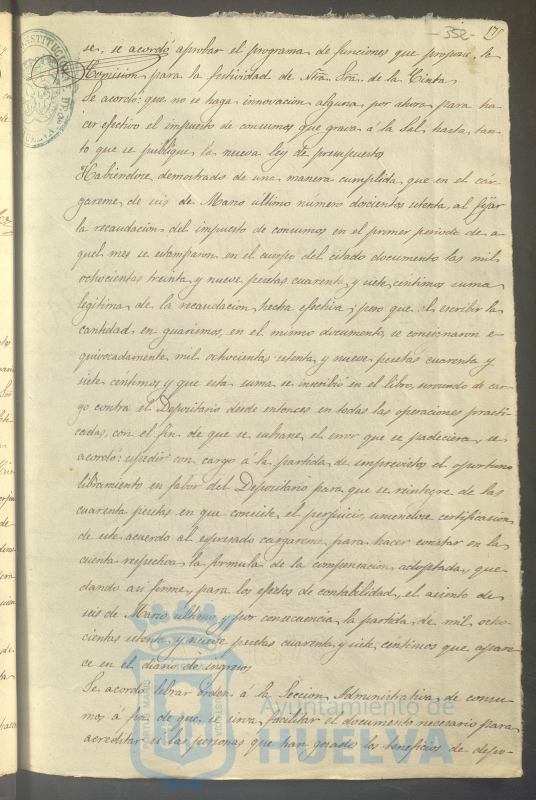 352
se, se acordó aprobar el programa de funciones que propone la
Comision para la festividad de Ntra. Sra. de la Cinta.
Se acordó: que no se haga innovacion alguna, por ahora, para ha-
cer efectivo el impuesto de consumos que grava á la Sal, hasta tan-
to que se publique la nueva ley de presupuestos
Habiéndose demostrado de una manera cumplida, que en el car-
gareme de seis de Marzo último numero doscientos setenta, al fijar
la recaudacion del impuesto de consumos en el primer periodo de a-
quel mes se estamparon en el cuerpo del citado documento las mil
ochocientas treinta y nueve pesetas cuarenta y siete centimos suma
legitima de la recaudacion hecha efectiva; pero que al escribir la
cantidad en guarismos, en el mismo documento, se consignaron e-
quivocadamente mil ochocientas setenta y nueve pesetas cuarenta y
siete centimos y que esta suma se inscribió en el libro, sirviendo de car-
go contra el Depositario desde entonces en todas las operaciones practi-
cadas, con el fin de que se subsane el error que se padeciera, se
acordó: espedir con cargo á la partida de imprevistos el oportuno
libramiento en fabor del Depositario para que se reintegre de las
cuarenta pesetas en que consiste el perjuicio, uniendose certificacion
de este acuerdo al espresado cargareme para hacer constar en la
cuenta respectiva la formula de la compensacion adoptada, que-
dando asi firme, para los efectos de contabilidad, el asiento de
seis de Marzo último y por consecuencia la partida de mil ocho-
cientas setenta y nueve pesetas cuarenta y siete centimos que apare-
ce en el diario de ingresos
Se acordo librar órden á la Seccion Administrativa de consu-
mos á fin de que se sirva facilitar el documento necesario para
acreditar si las personas que han gozado los beneficios de depo-
Ayuntamiento de
HUELVA